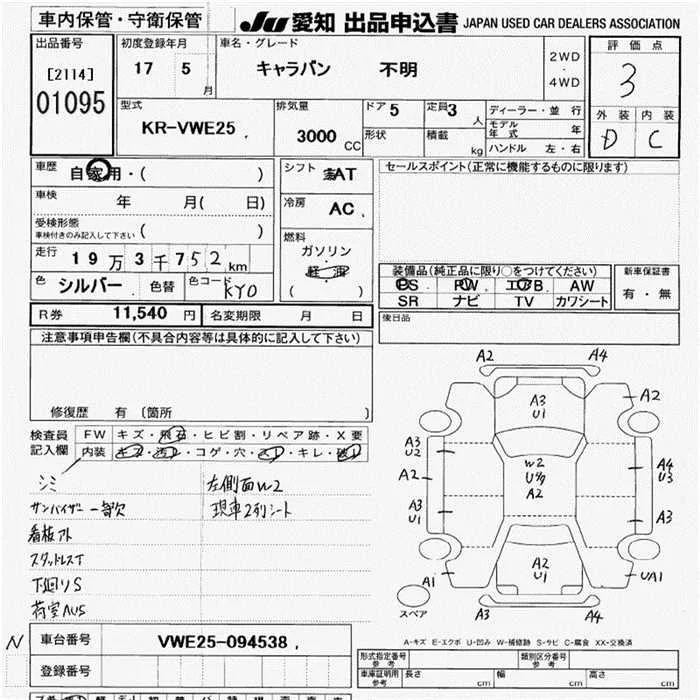 車内保管・守衛保管
JU 愛知 出品申込書 JAPAN USED CAR DEALERS ASSOCIATION
出品番号
[2114]
01095
初度登録年月
17 5 月
車名・グレード
キャラバン 不明
2WD
・
4WD
評価点
3
外装 内装
D C
型式
KR-VWE25
排気量
3000 CC
ドア 5
定員 3 人
形状
積載 kg
ディーラー・並行
モデル年式 年
ハンドル 左・右
車歴
自家用・( )
車検
年 月( 日)
受検形態
車検付きのみ記入して下さい ( )
走行
19万3千752 km
色 シルバー 色替 色コード KY0
シフト AT
冷房 AC
燃料
ガソリン
軽油
( )
セールスポイント(正常に機能するものに限ります)
装備品(純正品に限り○をつけてください)
PS PW エアB AW
SR ナビ TV カワシート
新車保証書
有・無
後日品
R券 11,540 円 名変期限 月 日
注意事項申告欄(不具合内容等は具体的に記入して下さい)
修復歴 有〔箇所 〕
検査員記入欄
FW キズ・飛石・ヒビ割・リペア跡・X要
内装 キズ・汚れ・コゲ・穴・スレ・キレ・破れ
シミ
サンバイザー一部欠
看板アト
スタッドレスT
下廻りS
荷室AUS
左側面W2
現車2列シート
A2 A4
A3
U1
A2
A3
U2
A2
A3
U1
W2
A2
A4
U3
A3
A2
U1
A1
UA1
スペア
A3 A4
A-キズ E-エクボ U-凹み W-補修跡 S-サビ C-腐食 XX-交換済
N
車台番号 VWE25-094538
登録番号
形式指定番号 参考
類別区分番号 参考
車庫証明用 参考 長さ cm 幅 cm 高さ cm